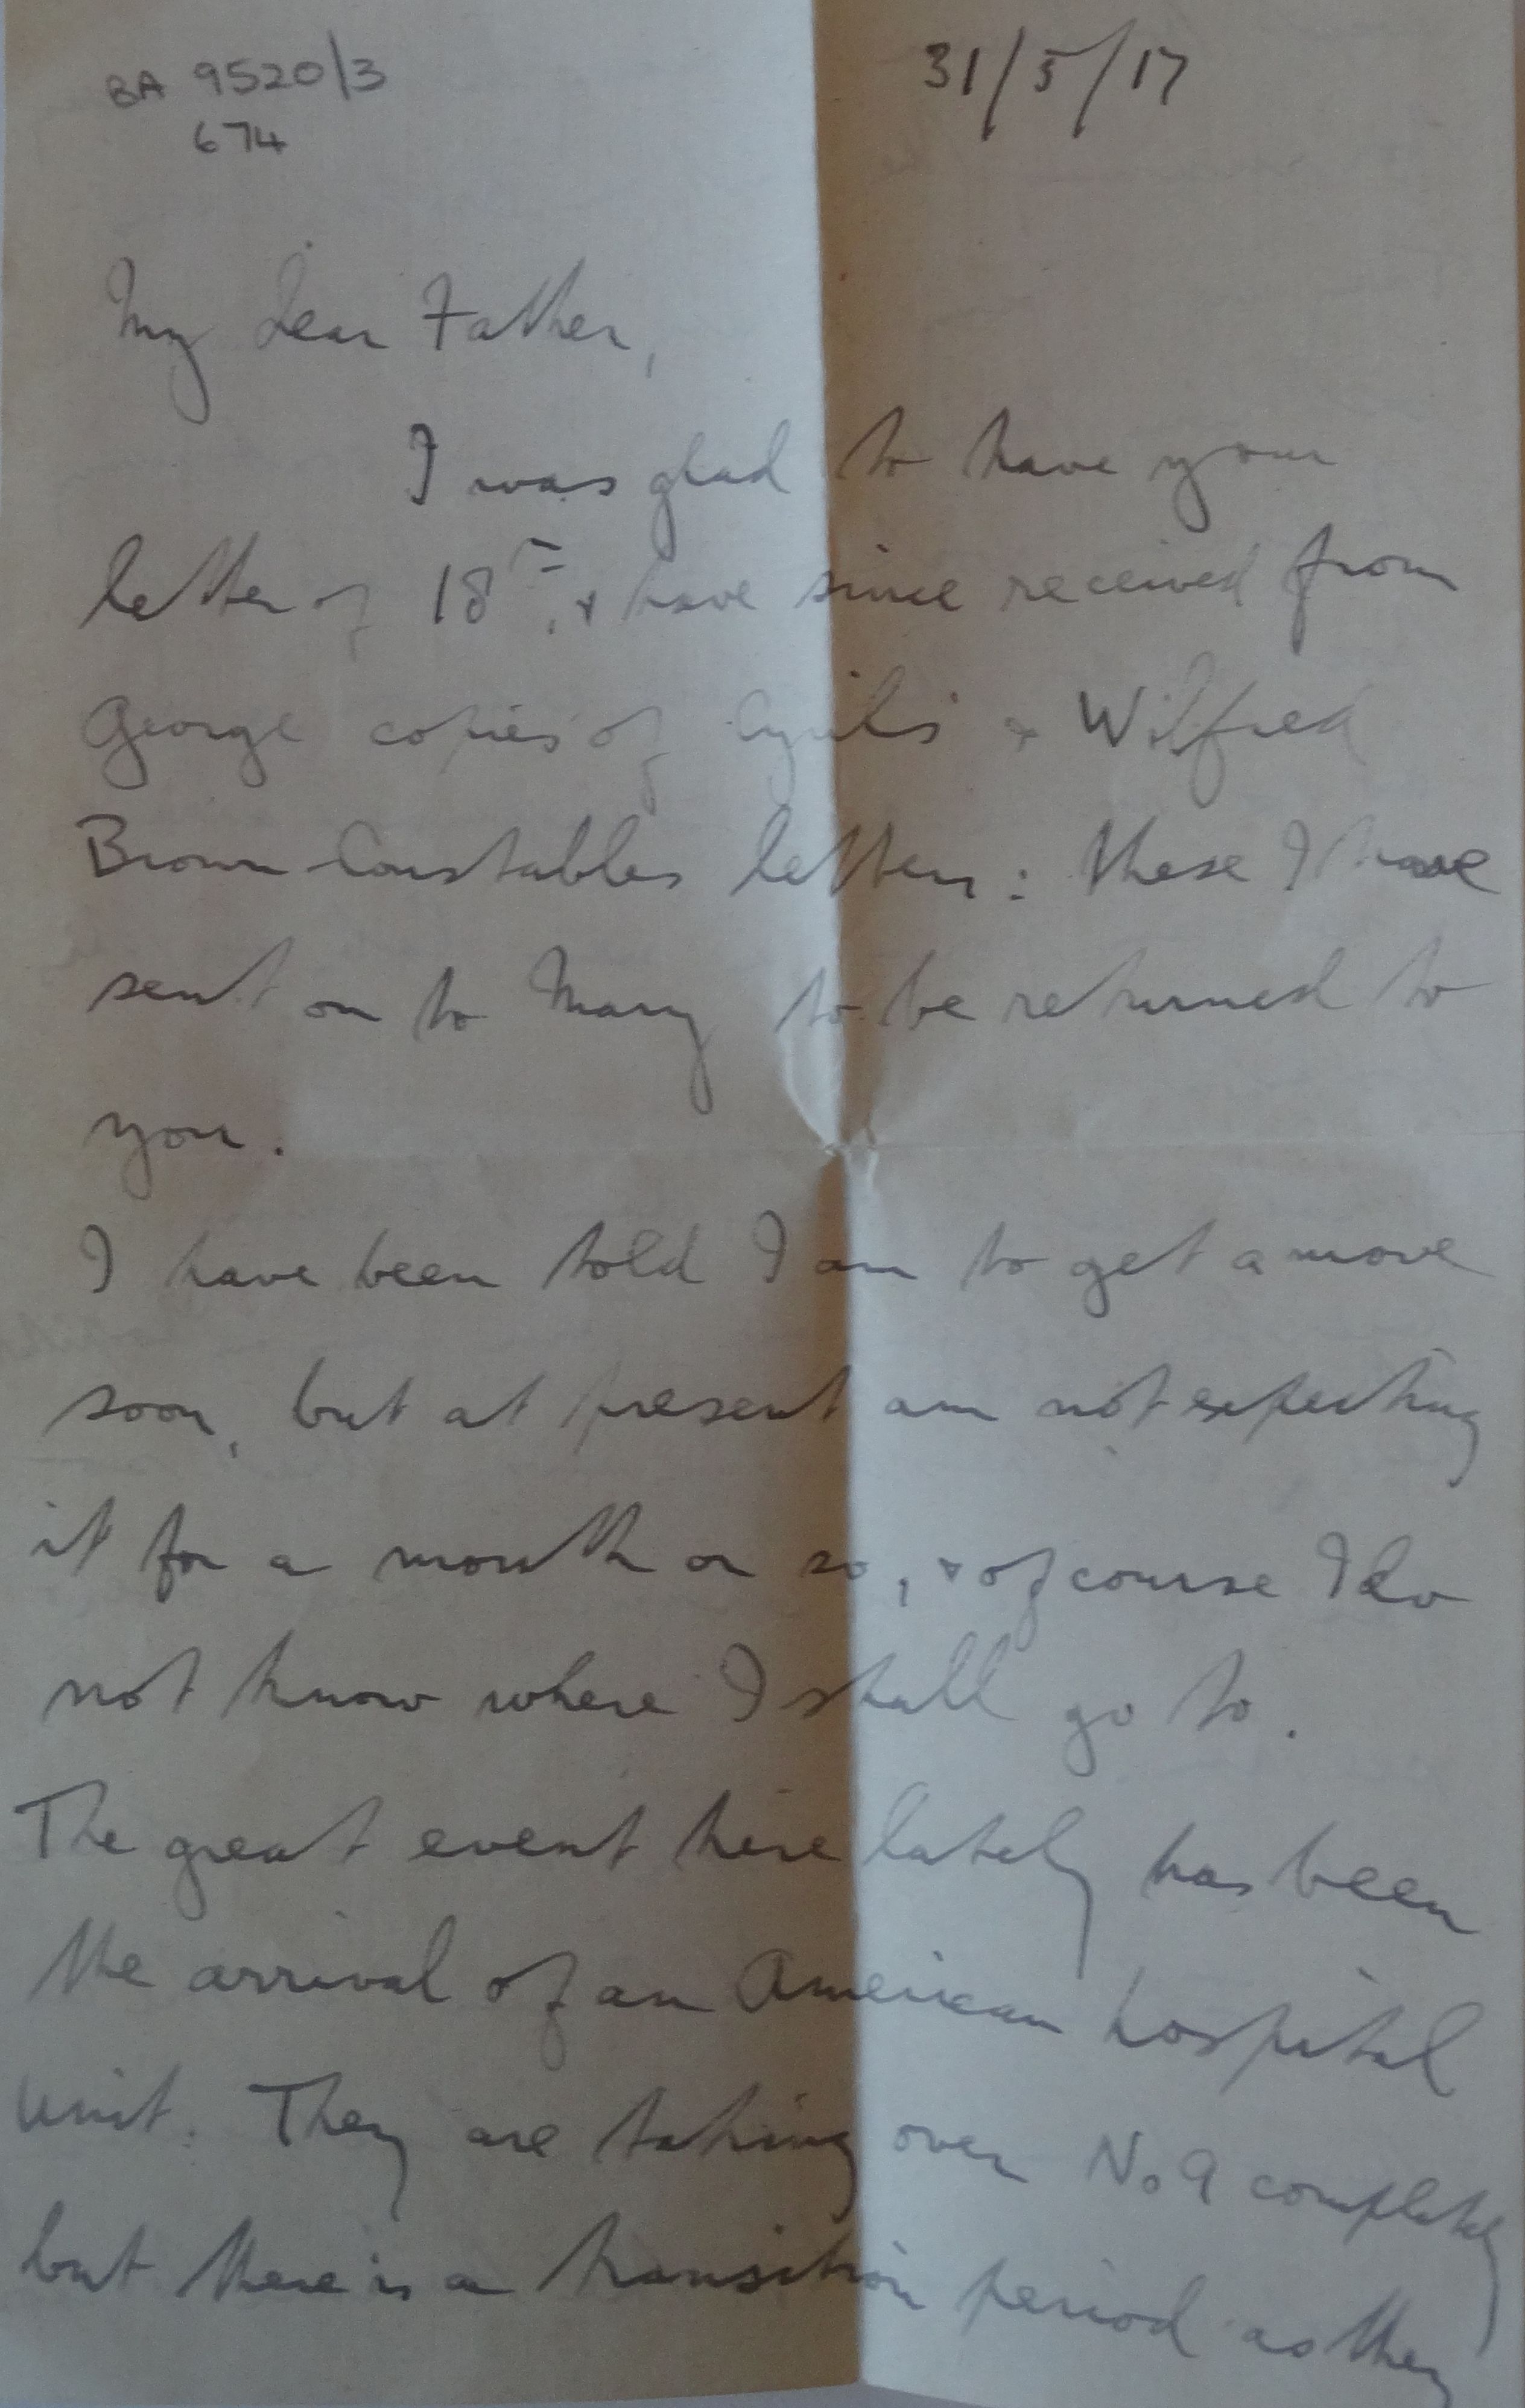 BA 9520/3
674
31/5/17
My dear Father,
I was glad to have your
letter of 18th, & have since received from
George copies of Cyril's & Wilfred
Brown-Constables letters: these I have
sent on to Mary to be returned to
you.
I have been told I am to get a move
soon, but at present am not expecting
it for a month or so, & of course I do
not know where I shall go to.
The great event here lately has been
the arrival of an American hospital
unit. They are taking over No 9 completely
but there is a transition period as they